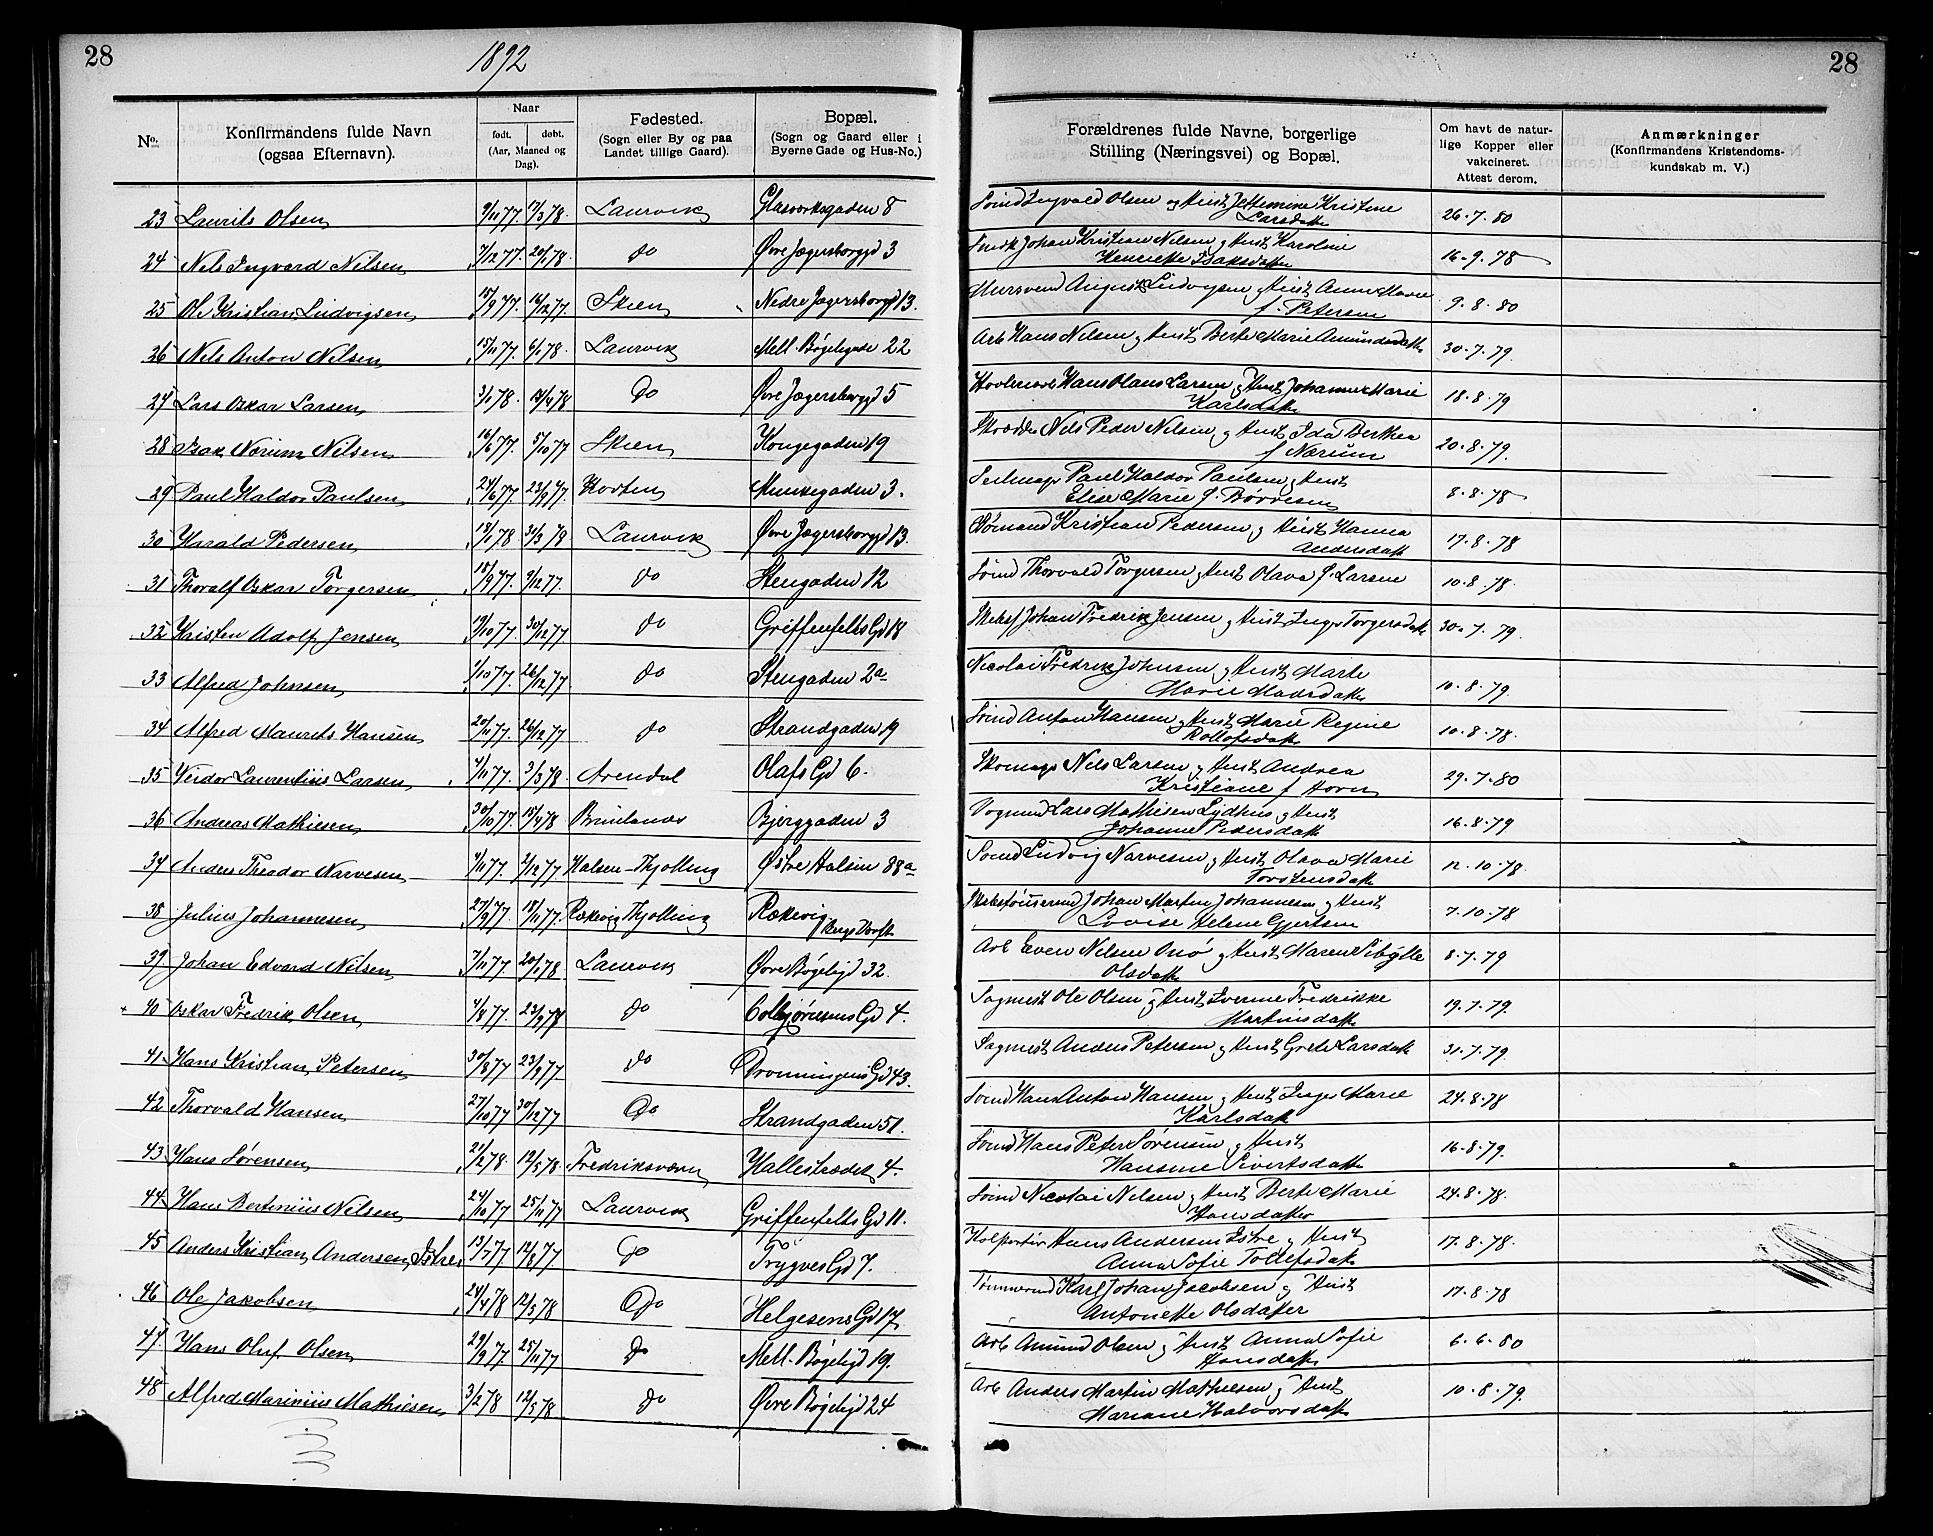 28
1892
28
No.
Konfirmandens fulde Navn
(ogsaa Efternavn).
Naar
født. døbt.
(Aar, Maaned og
Dag).
Fødested.
(Sogn eller By og paa
Landet tillige Gaard).
Bopæl.
(Sogn og Gaard eller i
Byerne Gade og Hus-No.)
Forældrenes fulde Navne, borgerlige
Stilling (Næringsvei) og Bopæl.
Om havt de natur-
lige Kopper eller
vakcineret.
Attest derom.
Anmærkninger
(Konfirmandens Kristendoms-
kundskab m. V.)
23 Laurits Olsen 9/11 77 17/3 78. Laurvik Glasværksgaden 8 Sømd Ingvald Olsen og Hust Kristine 26.7.80
Larsdatt
24 Nels Ingvard Nilsen 7/12 77. 20/1 78. do Øvre Jægersborggd 3 Smedk Johan Kristian Nilsen og Hust Karoline 16.9.78
Henriette Isaksdatter
25 Ole Kristian Ludvigsen 15/9 77. 16/12 77. Skien Nedre Jægersborggd 13. Mursvend August Ludvigsen og Hust Anne Marie 9.8.80
f. Petersen
26 Nils Anton Nilsen 15/11 77. 6/1 78. Laurvik Mell. Bøgeligade 22 Arb Hans Nilsen og Hust Berte Marie Amundsdatt 30.7.79.
27 Lars Oskar Larsen 3/1 78. 14/4 78 do Øvre Jægersborggd 5 Hans Olaus Larsen og Hust Johanne Marie 18.8.79
Karlsdatt
28 Isak Nærum Nilsen 16/6 77. 5/10 77 Skien Kongegaden 19 Skrædder Nils Peder Nilsen og Hust Ida Berthea 20.8.79.
f Nærum
29 Paul Haldor Paulsen 24/6 77 23/9 77. Horten Munkegaden 3. Seilmager Paul Haldor Paulsen og Hust 8.8.78
Elise Marie f. Børresen
30 Harald Pedersen 18/1 78 31/3 78 Laurvik Øvre Jægersborggd 13. Sømand Kristian Pedersen og Hust Hanna 17.8.78
Andersdatt
31 Thoralf Oskar Torgersen 18/9 77. 9/12 77. do Stengaden 12 Sømd Thorvald Torgersen og Hust Olava f. Larsen 10.8.78.
32 Kristen Adolf Jensen 19/10 77 30/12 77. do Griffenfelts Gd 18 Johan Fredrik Jensen og Hust Inger Torgersdatt 30.7.79.
33 Alfred Johnsen 1/10 77. 26/12 77. do Stengaden 2a Nicolai Fredrik Johnsen og Hust Marte 10.8.79.
Marie Madsdatter
34 Alfred Maurits Hansen 20/11 77. 26/12 77 do Strandgaden 19 Sømd Anton Hansen og Hust Marie Regine 10.8.78.
Rollofsdatt
35 Veidor Laurentius Larsen 4/11 77. 3/3 78. Arendal Olafs Gd 6. Skomager Nils Larsen og Hust Andrea 29.7.80
Kristiane f Horn
36 Andreas Mathiesen 30/10 77. 15/4 78 Brunlanes Bjerggaden 3 Vogmnd Lars Mathiesen Lydhus og Hust 16.8.79
Johanne Pedersdatt
37 Anders Theodor Narvesen 4/11 77. 2/12 77 Halsen Thjølling Østre Halsen 88a Sømd Ludvig Narvesen og Hust Olava Marie 12.10.78.
Torstensdatt
38 Julius Johannesen 27/9 77 18/11 77. Rækevig Thjølling Rækevig Johan Martin Johannesen og Hust 7.10.78
Bugs Værft Lovise Helene Gjertsen
39. Johan Edvard Nilsen 7/11 77 20/1 78 Laurvik Øvre Bøgeligd 32. Arb Even Nilsen Onø og Hust Maren Sibylle 8.7.79
Olsdatt
+ 40 Oskar Fredrik Olsen 4/8 77. 23/9 78 do Colbjørnsens Gd 4. Sagmest Ole Olsen og Hust Iverine Fredrikke 19.7.79.
Martinsdatt
41 Hans Kristian Petersen 30/8 77 23/9 77 do Dronningens Gd 43. Sagmest Anders Petersen og Hust Grete Larsdatt 31.7.79.
42 Thorvald Hansen 27/10 77 30/12 77 Do Strandgaden 51. Sømd Hans Anton Hansen og Hust Inger Marie 24.8.78
Karlsdatt
43 Hans Sørensen 21/2 78. 19/5 78. Fredriksværn Hallestrædet 4. Sømd Hans Peter Sørensen og Hust 16.8.79.
Hansine Sivertsdatt
44 Hans Bertinius Nilsen 24/10 77 25/11 77 Laurvik Griffenfelts Gd 11. Sømd Nicolai Nilsen og Hust Berte Marie 24.8.78.
Hansdatter
45 Anders Kristian Andersen Istre 13/7 77 12/8 77 Do Trygves Gd 7. Kolportør Hans Andersen Istre og Hust 17.8.78.
Anna Sofie Tollefsdatt
46 Ole Jakobsen 24/4 78 12/5 78 Do Helgesens Gd 17 Tømmermd Karl Johan Jacobsen og Hust 17.8.78
Antonette Olsdatter
47. Hans Oluf Olsen 29/9 77. 25/11 77 Do Mell. Bøgeligd 19. Arb Amund Olsen og Hust Anna Sofie 6.6.80
Hansdatt
48 Alfred Marinius Mathiesen 3/2 78 12/5 78 do Øvre Bøgeligd 24 Arb Anders Martin Mathiesen og Hust 10.8.79.
Mariane Halvorsdatt